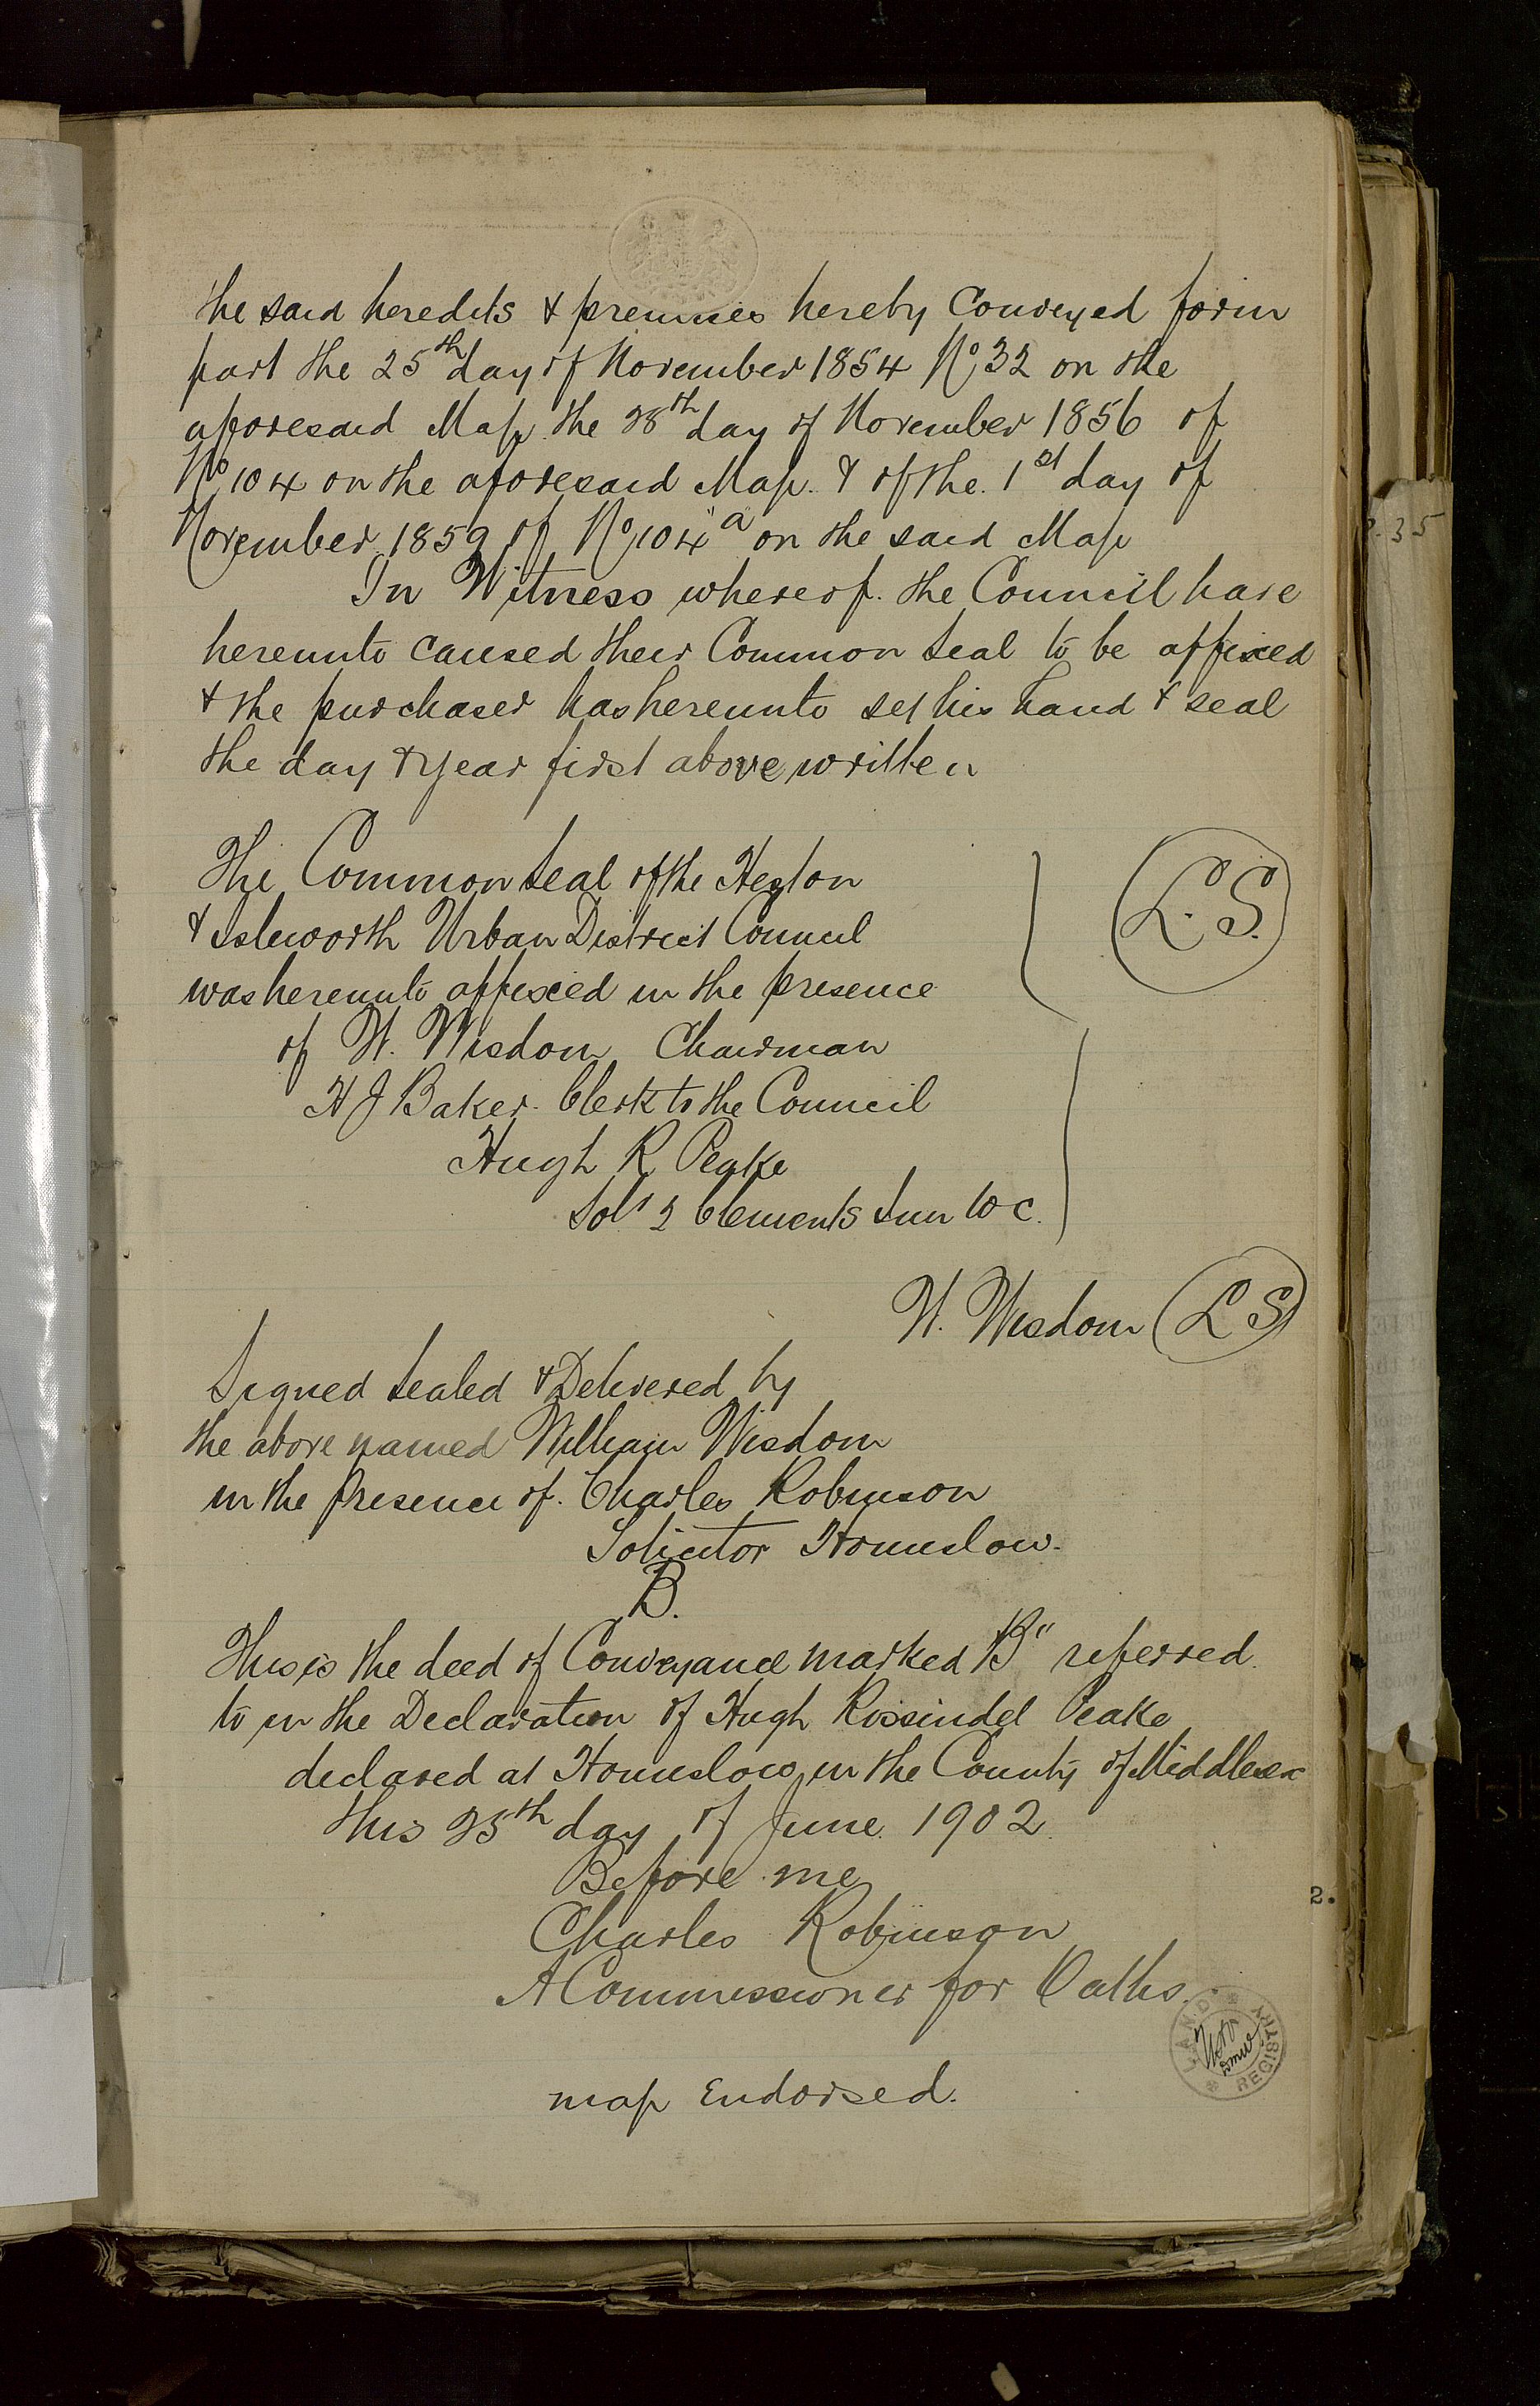 the said heredits & premises hereby Conveyed form
part the 25th day of November 1854 No 32 on the
aforesaid Map. the 28th day of November 1856 of
No 104 on the aforesaid Map. & of the. 1st day of
November 1859 of No 104 "a" on the said Map
In Witness whereof. the Council have
hereunto caused their Common Seal to be affixed
& the purchaser has hereunto set his hand & seal
the day & year first above written
The Common Seal of the Heston
& Isleworth Urban District Council
was hereunto affixed in the presence
L. S.
of W. Wisdom Chairman
H J Baker. Clerk to the Council
Hugh R Peake
Solr 2 Clements Inn W C.
W. Wisdom L S
Signed Sealed & Delivered by
the above named William Wisdom
in the presence of. Charles Robinson
Solicitor Hounslow.
B.
This is the deed of Conveyance marked B" referred.
to in the Declaration of Hugh Rossindel Peake
declared at Hounslow in the County of Middlesex
this 25th day of June 1902.
Before me
Charles Robinson
A Commissioner for Oaths.
LAND REGISTRY
map Endorsed.
35
2.